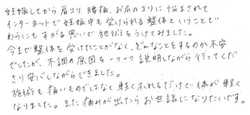 妊娠してから肩コリ、腰痛、お尻のコリに悩まされて
インターネットで妊娠中も受けられる整体ということで
わらにもすがる思いで施術をうけてみました。
今まで整体を受けたことがなく、どんなことをするのか不安
でしたが、不調の原因を一つ一つ説明しながら行ってくださり
安心しながらできました。
施術も痛いものではなく軽くふれるだけで体が軽く
なりました。また痛みが出たらお世話になりたいです。